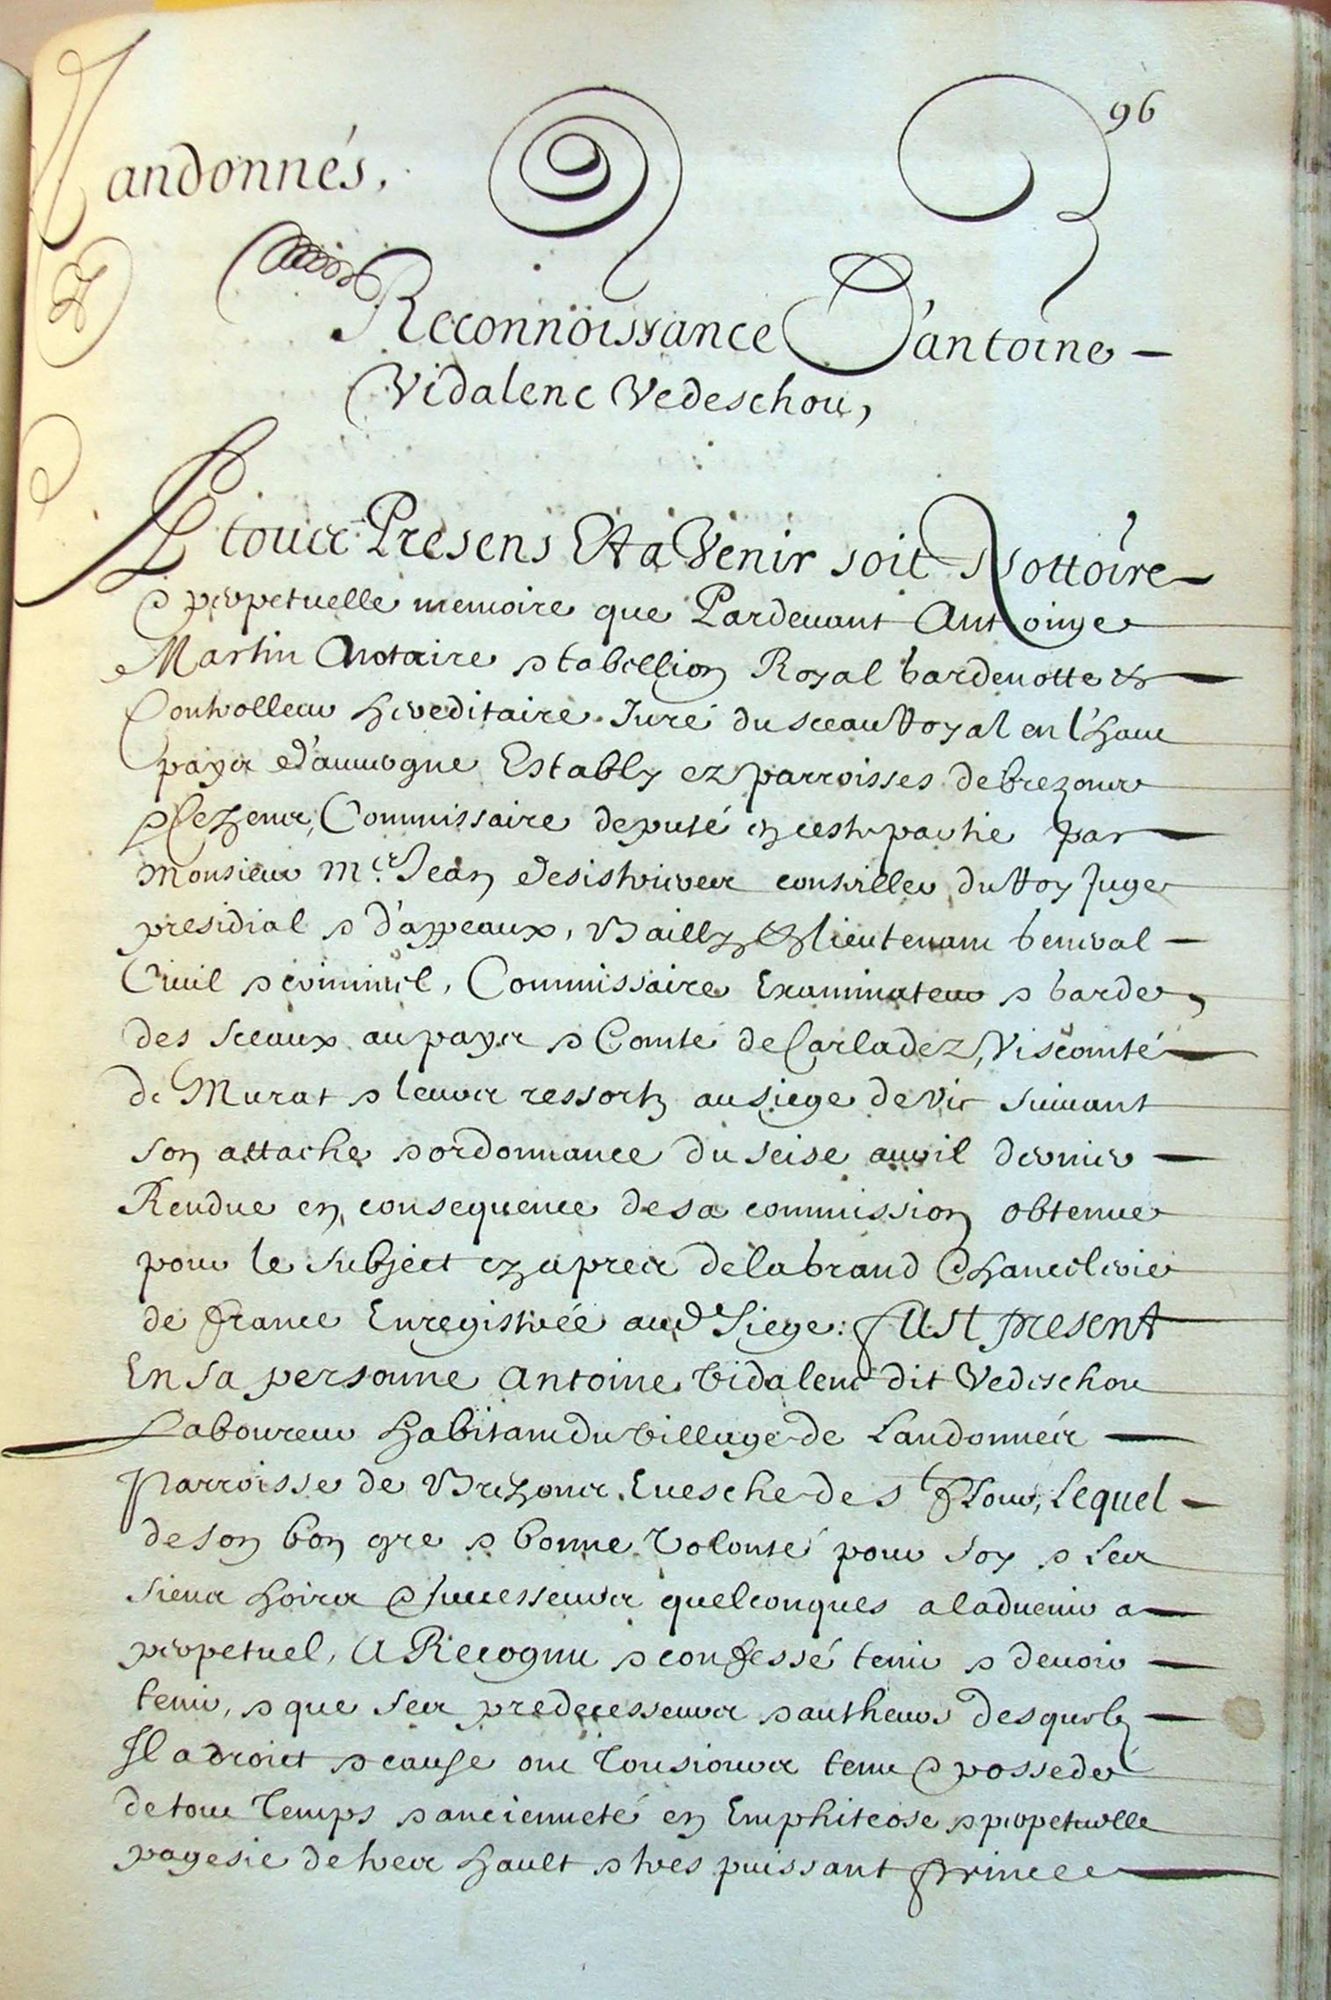 96
Landonnés,
Reconnoissance D'antoine
Vidalenc Vedeschou,
A tous Presens Et a Venir soit Nottoire
& perpetuelle memoire que Pardevant Anthoinye
Martin Notaire & tabellion Royal gardenotte et
Controlleur hereditaire Juré du sceau Royal en l'haut
pays d'auvergne Estably ez parroisses de brezons
& Cezens, Commissaire deputé en ceste partie par
Monsieur Mre Jean desistrieres conseiller du Roy Juge
presidial & d'appeaux, Bailly & lieutenant general
Civil & criminel, Commissaire Examinateur & garde
des sceaux au pays & Comté de Carladez, Viscomté
de Murat & leurs ressortz au siege de Vic suivant
son attache & ordonnance du seise avvril dernier
Rendue en consequence de sa commission obtenue
pour le subject cy apres de la grand Chancelerie
de france Enregistrée aud. Siege: fust present
En sa personne Antoine Vidalenc dit Vedeschou
Laboureur habitant du village de Landonnés
Parroisse de Brezons, Evesche de St flour, Lequel
de son bon gre & bonne volonté pour soy & ses
siens hoirs & successeurs quelconques a ladvenir a
perpetuel, A Recognu & confessé tenir & devoir
tenir, & que ses predecesseurs & autheurs desquelz
Il a droict & cause ont tousiours tenu & possedé
de tout temps & ancienneté en Emphiteose & perpetuelle
pagesie de tres hault & tres puissant prince